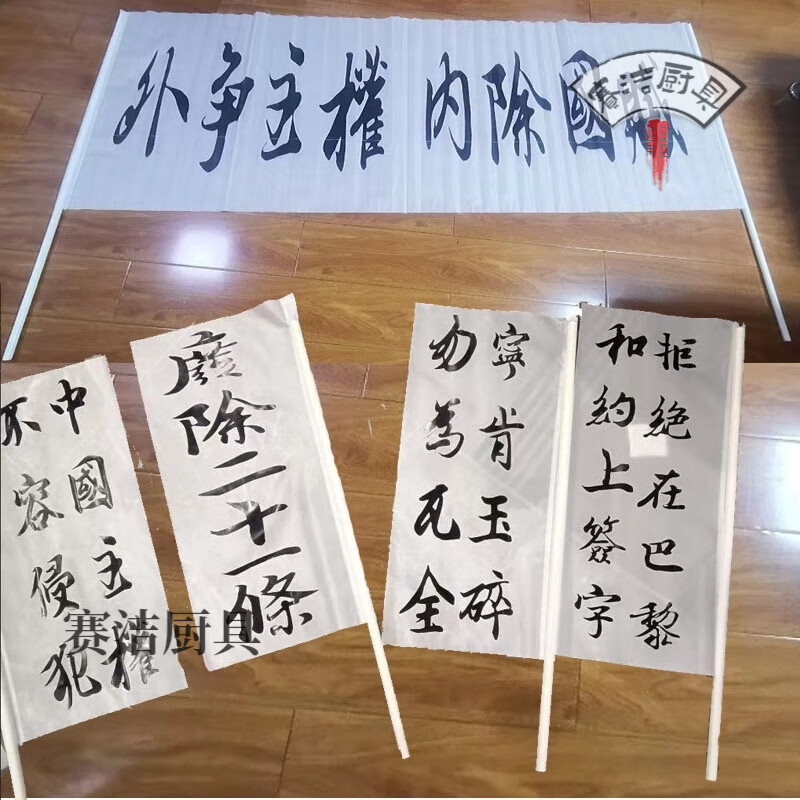 外争主權 内除國贼
赛洁厨具
中國主權
不容侵犯
廢除二十一條
寧肯玉碎
勿為瓦全
拒絶在巴黎
和約上簽字
赛洁厨具